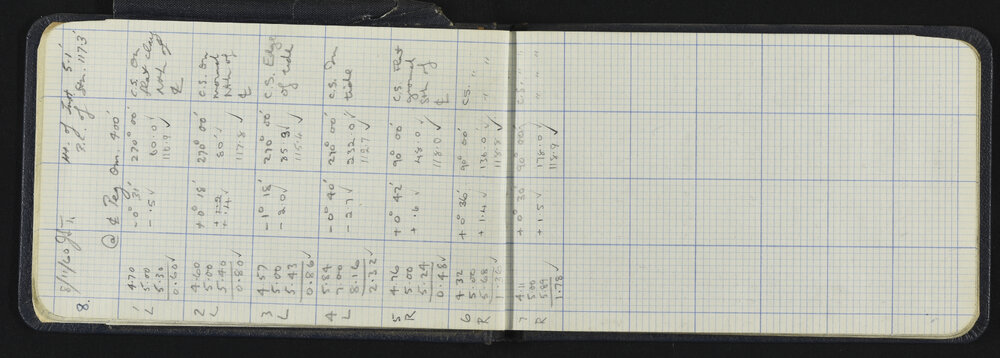 8. 8/11/60 Ht. of Inst 5.1'
R.L. of Stn. 117.3'
@ ℄ Peg Om. 400'
1 4.70 -0° 31' 270° 00' C.S. on
L 5.00 -.5✓ 60.0✓ flat clay
5.30 116.9✓ Nth of
0.60✓ ℄
2 4.60 +0° 18' 270° 00' C.S. on
L 5.00 +1.2 80'✓ mound
5.40 +.4✓ 117.8✓ Nth of
0.80✓ ℄
3 4.57 -1° 18' 270° 00' C.S. Edge
L 5.00 -2.0✓ 85.9✓ of tide
5.43 115.4✓
0.86✓
4 5.84 -0° 40' 270° 00' C.S. In
L 7.00 -2.7✓ 232.0✓ tide
8.16 112.7✓
2.32✓
5 4.76 +0° 42' 90° 00' C.S. Flat
R 5.00 +.6✓ 48.0✓ ground
5.24 118.0✓ Sth of
0.48✓ ℄
6 4.32 +0° 36' 90° 00' C.S. "
R 5.00 +1.4✓ 136.0✓ " "
5.68 118.8✓
1.36✓
7 4.11 +0° 30' 90° 00' C.S. " "
R 5.00 +1.5✓ 178.0✓ " "
5.89 118.9✓
1.78✓